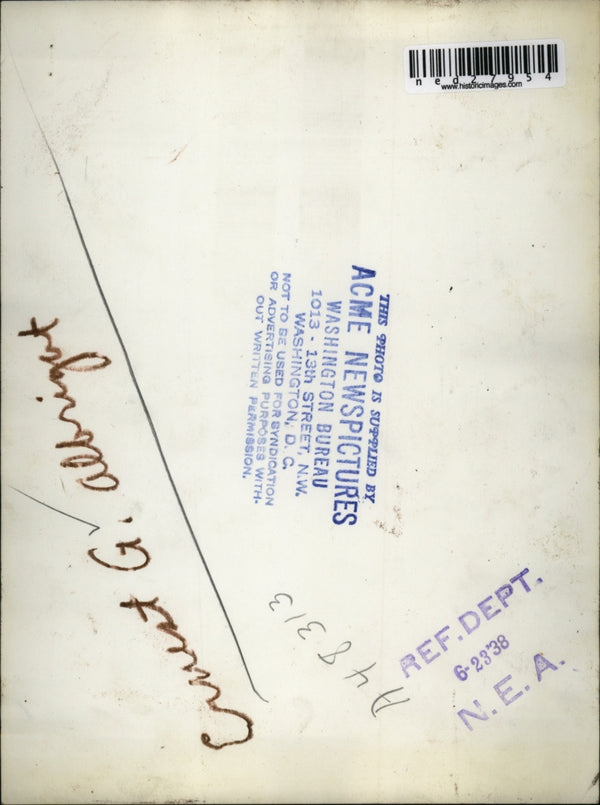 ned27954
www.historicimages.com
THIS PHOTO IS SUPPLIED BY
ACME NEWSPICTURES
WASHINGTON BUREAU
1013 - 13th STREET, N.W.
WASHINGTON, D. C.
NOT TO BE USED FOR SYNDICATION
OR ADVERTISING PURPOSES WITH-
OUT WRITTEN PERMISSION.
Ernest G. Albright
A48313
REF. DEPT.
6-23'38
N. E. A.